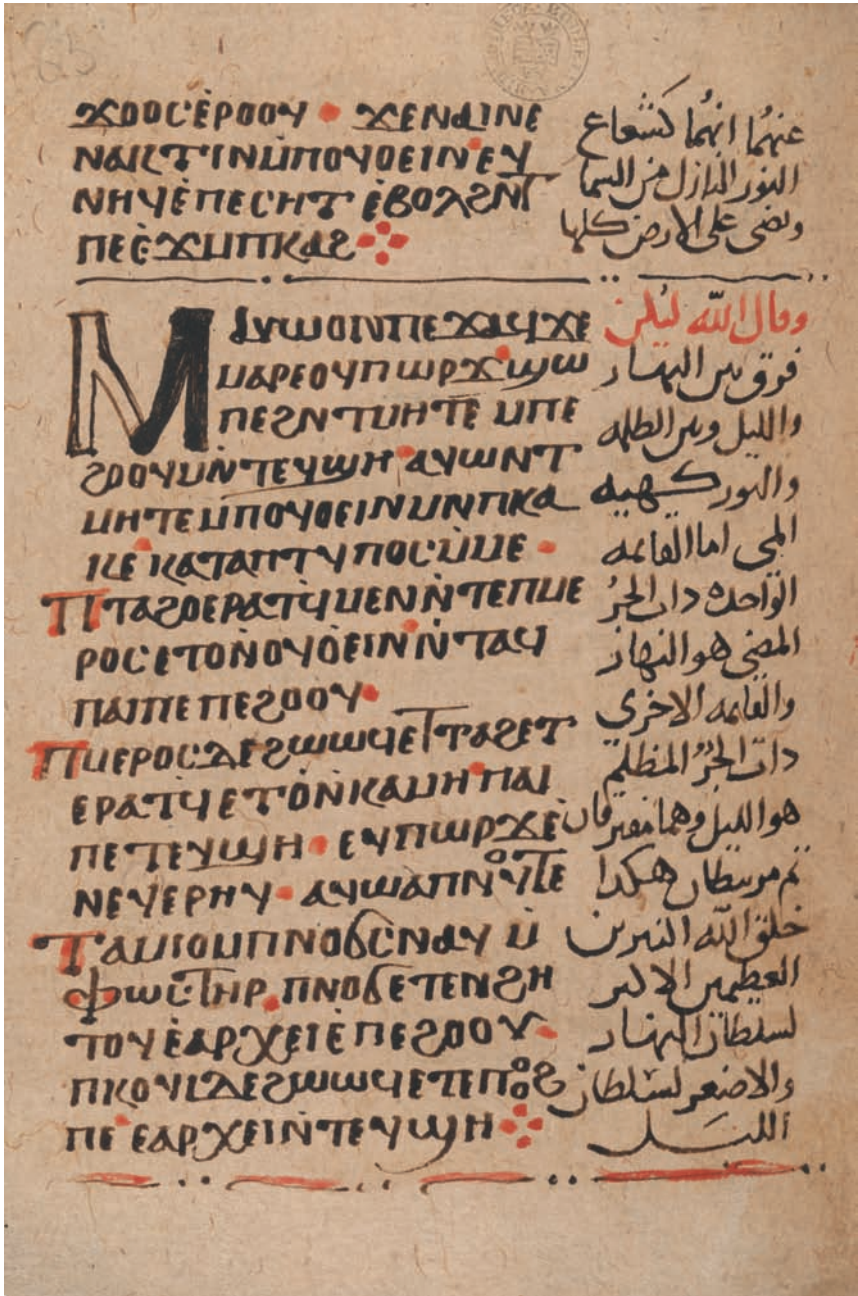 ϫⲟⲟⲥⲉ̇ⲣⲟⲟⲩ • ϫⲉⲛⲁⲓⲛⲉ
ⲛⲁⲕⲧⲓⲛⲙ̇ⲡⲟⲩⲟⲉⲓⲛⲉⲩ
ⲛⲏⲩⲉ̇ⲡⲉⲥⲏⲧ ⲉ̇ⲃⲟⲗϩⲛ̄ⲧ
ⲡⲉⲉ̇ϫⲙⲡⲕⲁϩ
Ⲙⲁⲩⲱⲟⲛⲡⲉϫⲁϥϫⲉ
ⲙⲁⲣⲉⲟⲩⲡⲱⲣϫϣⲱ
ⲡⲉϩⲛⲧⲙⲏⲧⲉ ⲙⲡⲉ
ϩⲟⲟⲩⲙⲛ̇ⲧⲉⲩϣⲏ • ⲁⲩⲱⲛⲧ
ⲙⲏⲧⲉⲙⲡⲟⲩⲟⲉⲓⲛⲙⲛⲡⲕⲁ
ⲕⲉ ⲕⲁⲧⲁⲡⲧⲩⲡⲟⲥⲙ̇ⲙⲉ •
ⲡⲧⲁϩⲟⲉⲣⲁⲧϥ̇ⲙⲉⲛⲛ̇ⲧⲉⲡⲙⲉ
ⲣⲟⲥⲉⲧⲟⲛ̇ⲟⲩⲟ̇ⲉⲓⲛⲛ̇ⲧⲁϥ
ⲡⲁⲓⲡⲉ ⲡⲉϩⲟⲟⲩ •
ⲡⲙⲉⲣⲟⲥⲇⲉϩⲱⲱϥⲉⲧⲧⲁϩⲉⲧ
ⲉⲣⲁⲧϥ̇ⲉⲧⲟ̇ⲛ̇ⲕⲁⲙⲏ ⲡⲁⲓ
ⲡⲉ ⲧⲉⲩϣⲏ • ⲉⲩⲡⲱⲣϫⲉ̇
ⲛⲉⲩⲉⲣⲏⲩ • ⲁⲩⲱⲁⲡⲛⲟⲩⲧⲉ
ⲧⲁⲙⲓⲟⲙⲡⲛⲟϭⲥⲛⲁⲩ ⲙ̇
ⲫⲱⲥⲧⲏⲣ • ⲡⲛⲟϭⲉⲧⲉⲛϩⲏ
ⲧⲟⲩⲉ̇ⲁⲣⲭⲉⲓⲉ̇ⲡⲉϩⲟⲟⲩ •
ⲡⲕⲟⲩⲓⲇⲉϩⲱⲱϥⲉⲧⲉⲡⲟⲟϩ
ⲡⲉ ⲉⲁⲣⲭⲉⲓⲛ̇ⲧⲉⲩϣⲏ
عنهُما انهُما كشُعاع
النور النازل من السما
وتضى على الارض كلها
وقال الله ليكن
فرق بين النهار
والليل وبين الظلمه
والنور كهيه
المى اما القايمه
الواحده دات الجزُ
المضى هو النهار
والقايمه الاخرى
دات الجزُ المظلم
هو الليل وهما مفترقان
ثم مرتبطان هكدا
خلق الله النيرين
العظيمين الاكبر
لسلطان النهار
والاصغر لسلطان
الليل